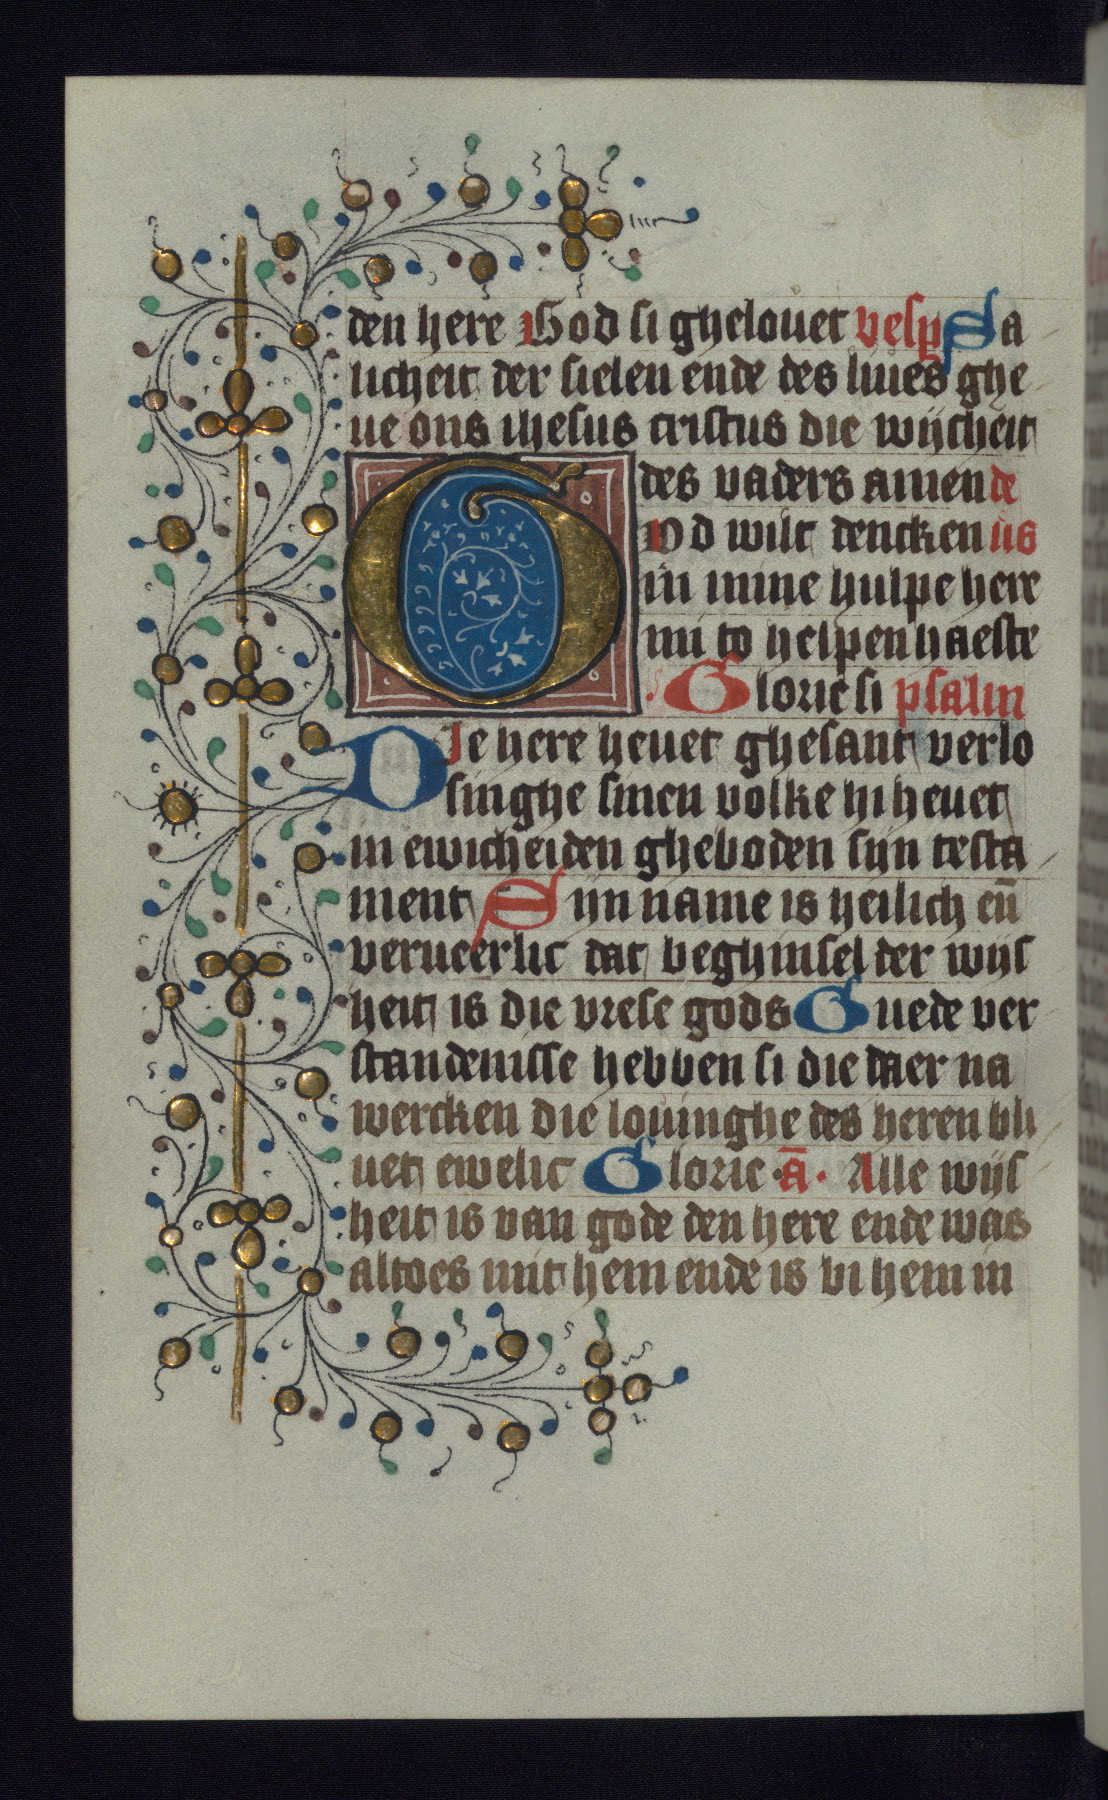 den here God si ghelouet vesp Sa
licheit der sielen ende des liues ghe
ue ons ihesus cristus die wijcheit
des vaders amen de
God wilt dencken us
in mine hulpe here
mi to helpen haeste
Glorie si psalm
DIe here heuet ghesant verlo
singhe sinen volke hi heuet
in ewicheiden gheboden sijn testa
ment Sijn name is heilich en̄
verueerlic dat beghinsel der wijs
heit is die vrese gods Guede ver
standenisse hebben si die daer na
wercken die louinghe des heren bli
uet ewelic Glorie · ā · Alle wijs
heit is van gode den here ende was
altoes mit hem ende is bi hem in